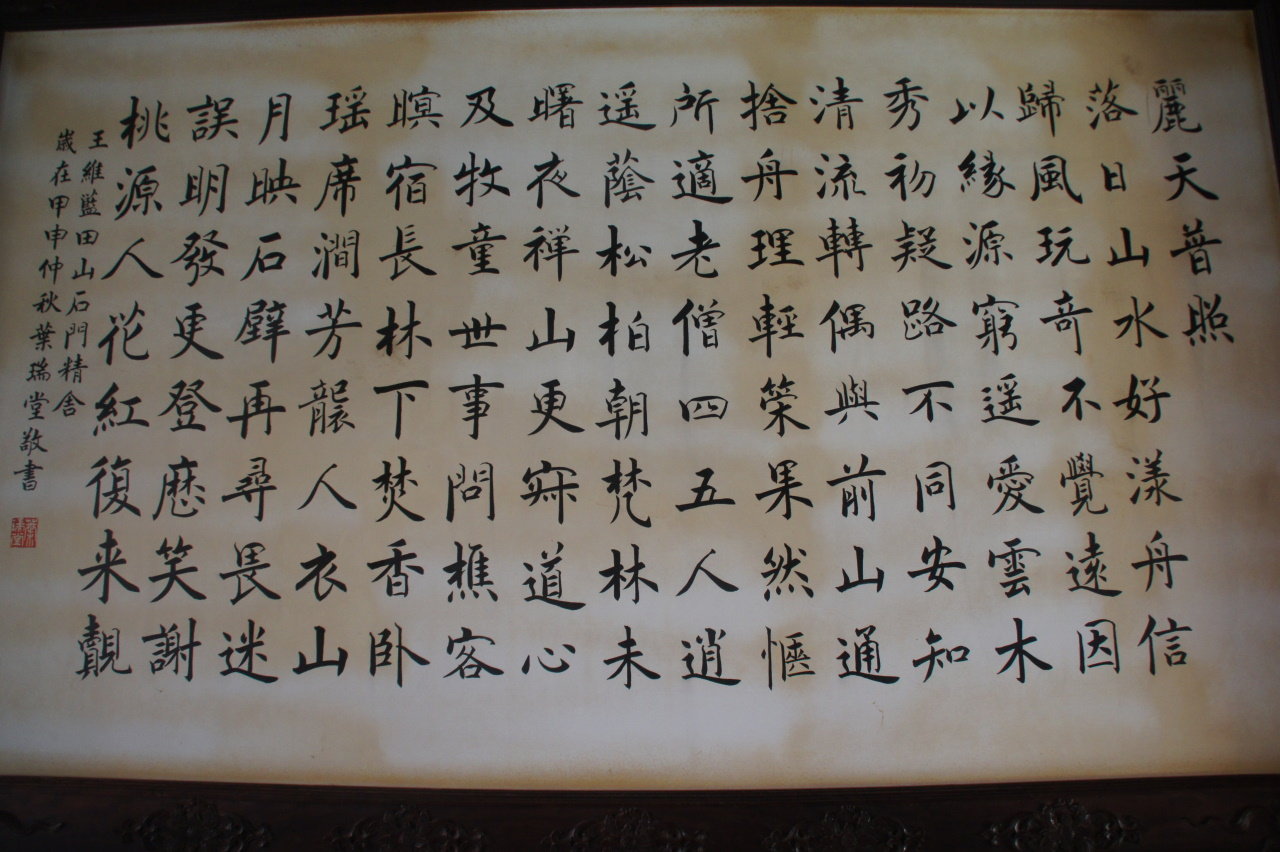 麗天普照
落日山水好漾舟信
歸風玩奇不覺遠因
以緣源窮遥愛雲木
秀初疑路不同安知
清流轉偶與前山通
捨舟理輕策果然愜
所適老僧四五人逍
遥蔭松柏朝梵林未
曙夜禅山更寂道心
及牧童世事問樵客
暝宿長林下焚香卧
瑶席澗芳襲人衣山
月映石壁再尋畏迷
誤明發更登歷笑謝
桃源人花紅復来覿
王維藍田山石門精舍
歲在甲申仲秋葉瑞堂敬書